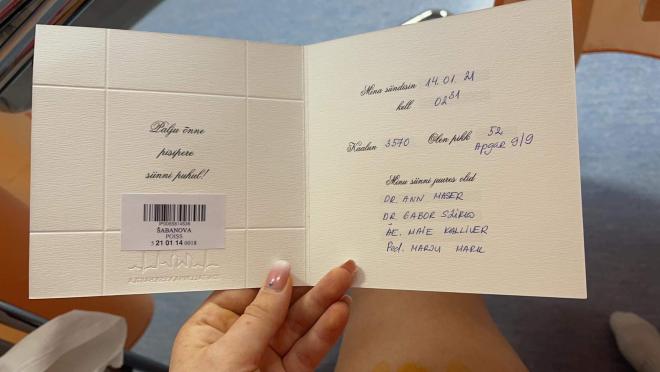 Palju õnne
pisipere
sünni puhul!
ŠABANOVA
POISS
5 21 01 14 0018
Mina sündisin 14.01.21
kell 02 31
Kaalun 3570 Olen pikk 52
Apgar 9/9
Minu sünni juures olid
DR ANN MASER
DR GABOR
ÄE. MAIE KALLIVER
Ped. MARJU MARK